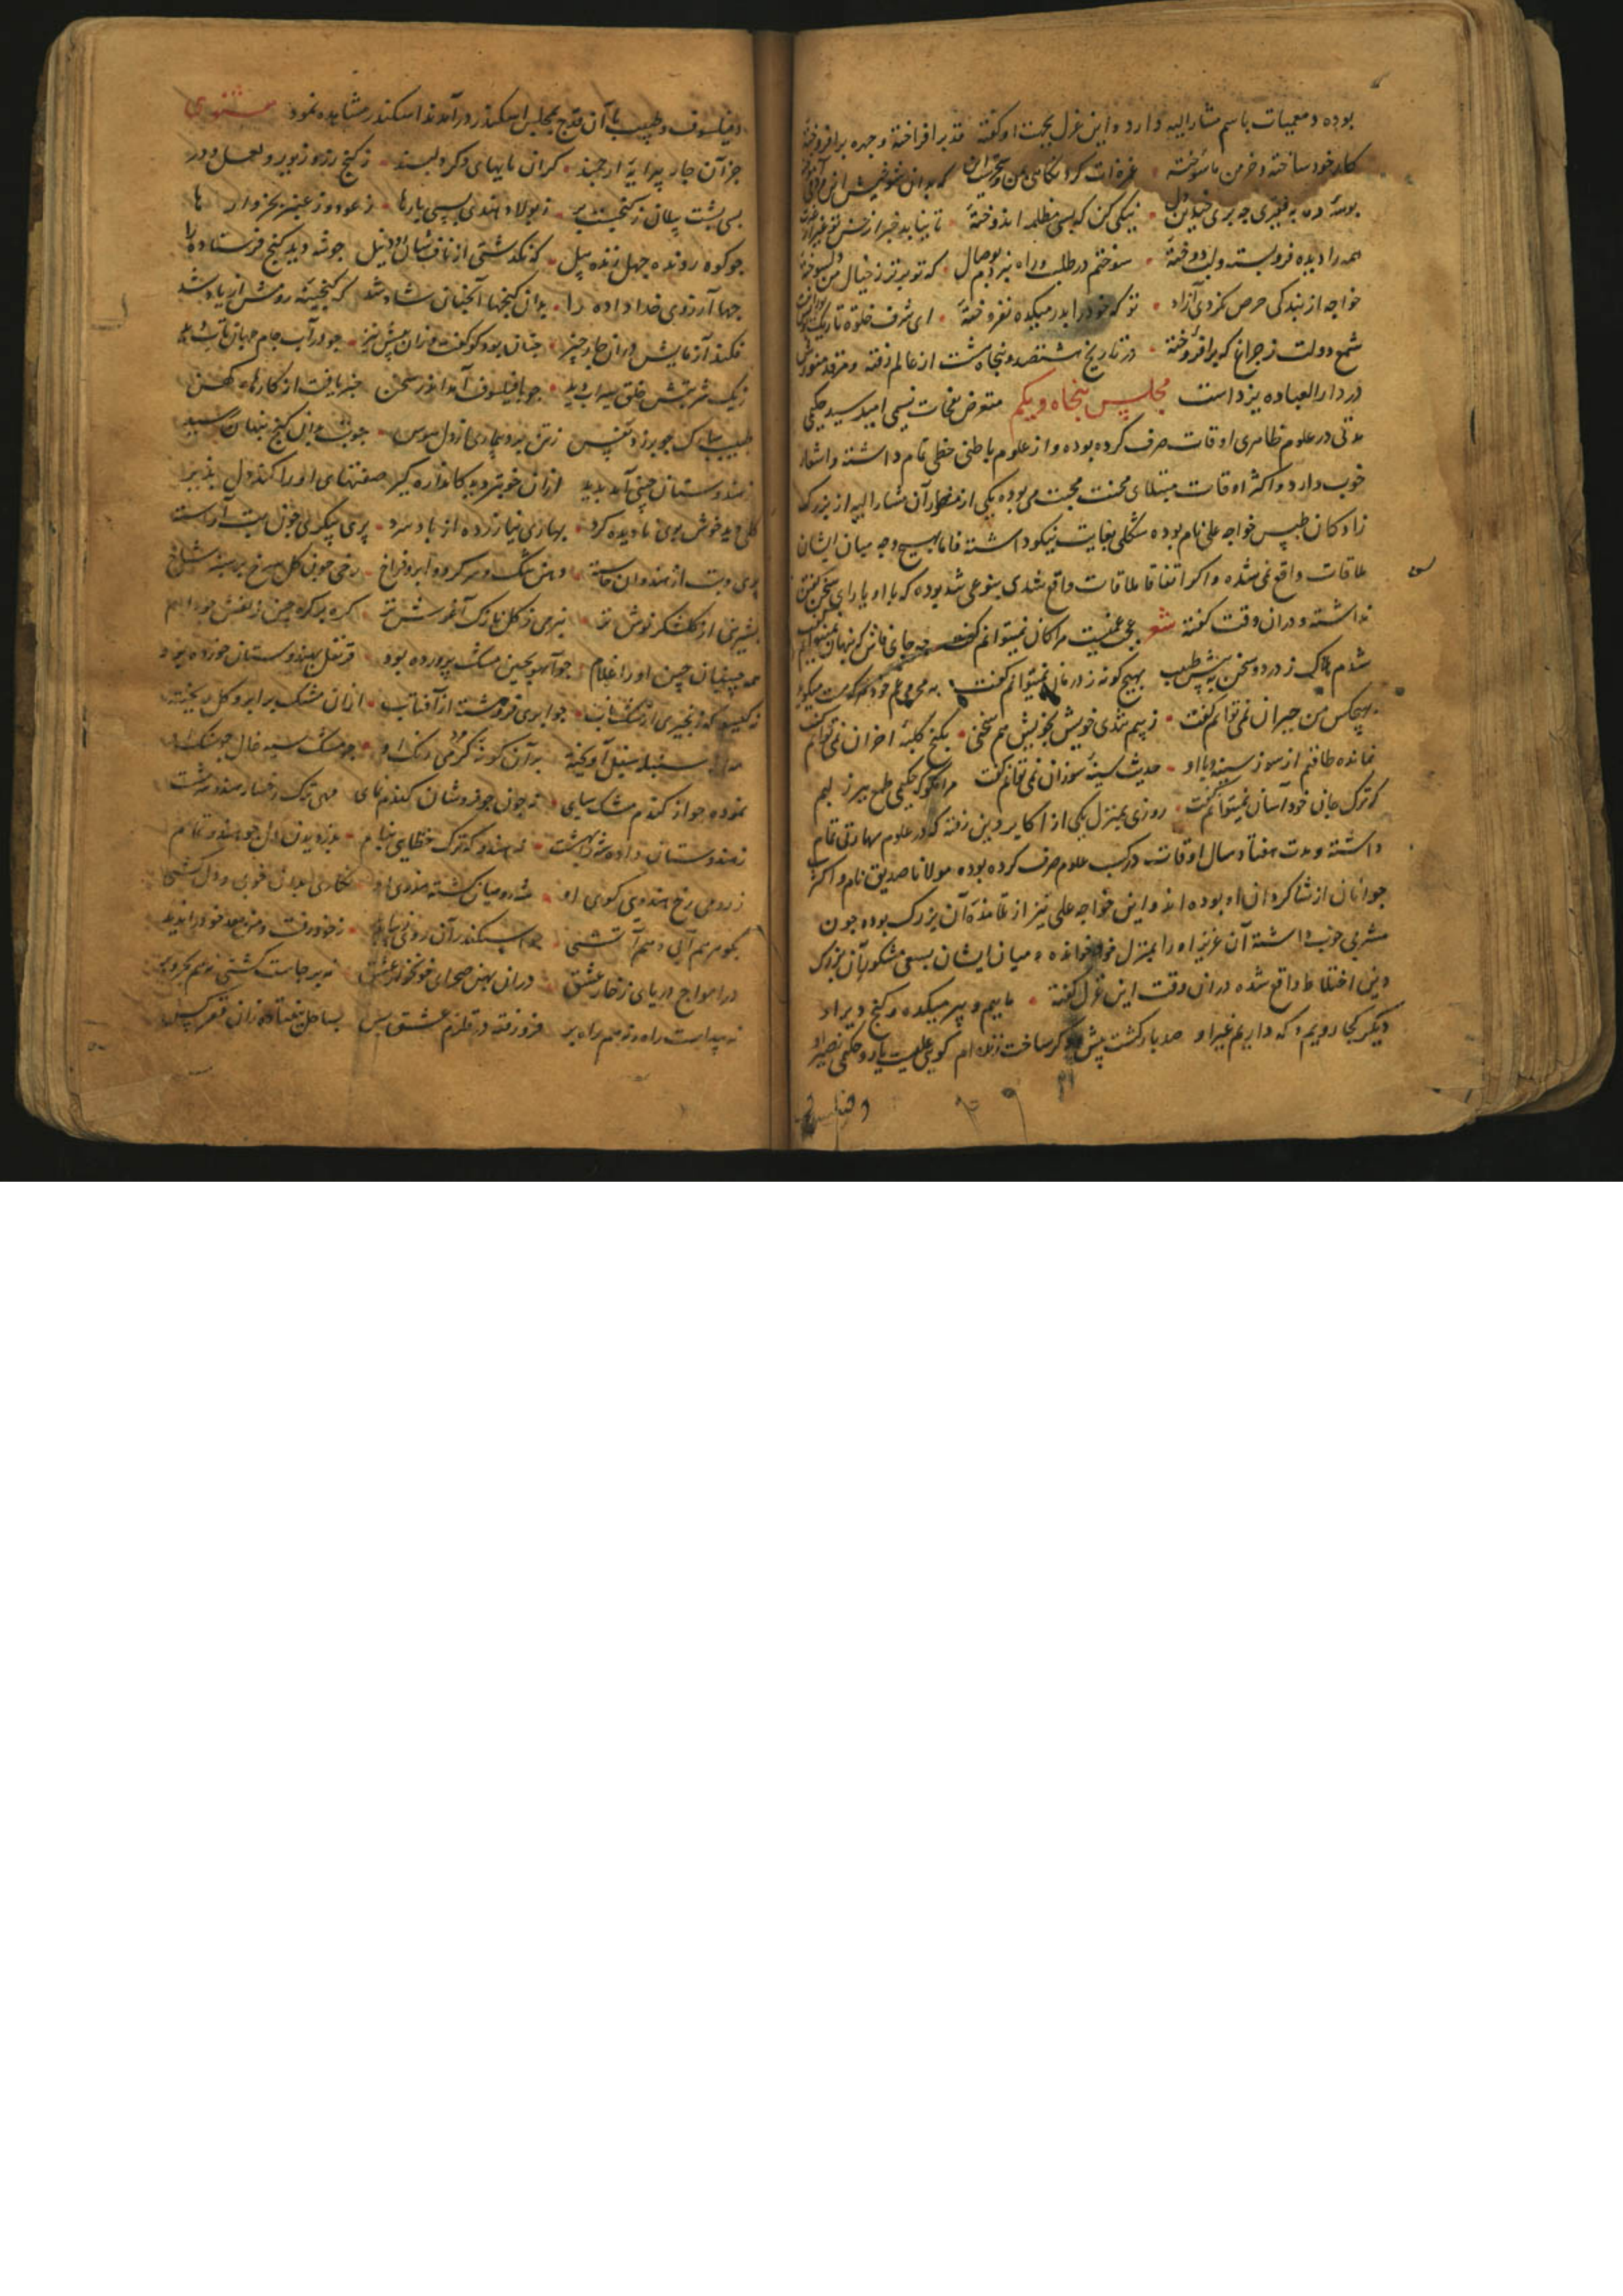 بوده و معمیات باسم مشارالیه دارد و این غزل بجهت او گفته قد برافراختهٔ و چهره برافروختهٔ
کار خود ساخته و خرمن ما سوختهٔ غمزه‌ات کرد
بوسهٔ ده به فقیری چو بری نیکی کن که بسی مظلمه اندوختهٔ تا بیابد خبر از حسن تو غیر از
همه را دیده فرو بسته و لب دوختهٔ سوختم در طلبت وراه نبردم بوصال که تو
خواجه از بندگی حرص نکردی آزاد تو که خود را بدر میکده نفروختهٔ ای شرف خلوت تاریک
شمع دولت ز چراغ که برافروختهٔ در تاریخ هشتصد و پنجاه هشت از عالم رفته و مرقد منورش
در دار العباده یزد است مجلس پنجاه و یکم متعرض نفحات نسیم امید سید حکیمی
مدتی در علوم ظاهری اوقات صرف کرده بوده و از علوم باطنی حظی تمام داشته و اشعار
خوب دارد و اکثر اوقات مبتلای محنت محبت می بوده یکی از منظوران مشارالیه از بزرگ
زادکان طبس خواجه علی نام بوده شکلی بغایت نیکو داشته فاما بهیچ وجه میان ایشان
ملاقات واقع نمی شده و اکر اتفاقا ملاقات واقع شدی بنوعی شد بوده که با او یارای سخن گفتن
نداشته و در آن وقت گفته شعر عجب غمیست مرا کان نمیتوانم گفت چه جای فاش که پنهان نمیتوانم گفت
شدم هلاک ز درد و سخن به پیش طبیب بهیچ گونه ز درمان نمیتوانم گفت به محرمی غم خود
بهیچکس من حیران نمی توانم گفت ز بیم تندی خویش بخویش هم سخنی بکنج کلبهٔ احزان نمی توانم گفت
نمانده طاقتم از سوز سینه و با او حدیث سینهٔ سوزان نمی توانم گفت مرا مگو که حکیمی طمع ببر ز لبم
که ترک جان خود آسان نمیتوانم گفت روزی بمنزل یکی از اکابر دین رفته که در علوم مهارتی تمام
داشته و مدت هفتاد سال اوقات در کسب علوم صرف کرده بوده مولانا صدیق نام و اکثر
جوانان از شاگردان او بوده اند و این خواجه علی نیز از تلامذهٔ آن بزرک بوده چون
مشربی خوب داشته آن عزیز او را بمنزل خود خوانده و میان ایشان بسعی مشکور آن بزرک
دین اختلاط واقع شده در آن وقت این غزل گفته ماییم و پیر میکده و کنج دیر او
دیگر کجا رویم و که داریم غیر او صد بار کشت پیش و گر ساخت زنده ام
و فیلسوف
و فیلسوف و طبیب با آن قدح بمجلس اسکندر درآمدند اسکندر مشاهده نمود مثنوی
جز آن چار پیرایهٔ ارجمند گران مایهای دگر دلپسند ز گنج زر و زیور و لعل و در
بسی پشت پیلان ز گنجینه پر ز پولاد هندی بسی بارها ز عود و ز عنبر بخروارها
چو کوه رونده چهل زنده پیل که نگذشتی از ناف شان رود نیل چو شه دید گنج فرستاده را
چهار آرزوی خدا داده را بدان گنجها آنچنان شاد شد که گنجینهٔ رومش از یاد شد
فکند آزمایش در آن چار چیز چنان بود کو گفت و زان بیش نیز چو در آب جام جهان تاب دید
ز یک شربتش خلق سیراب دید چو با فیلسوف آمد اندر سخن خبر یافت از کارهای کهن
طبیب مبارک چو برزد نفس ز تن برد بیماری از دل هوس چو نوبت بدان گنج پنهان رسید
ز هندوستان چینی آمد پدید از آن خوبتر دید کاندازه گیر صفتهای او را کند دل پذیر
گلی دید خوش بوی نادیده گرد بهاری نیازرده از باد سرد پری پیکری چون بت آراسته
پری و بت از هندوان خاسته دهن تنگ و سر گرد و ابرو فراخ رخی چون گل سرخ بر سبز شاخ
بشیرینی از گلشکر نوش تر بنرمی ز گل نازک آغوش تر گره بر گره چین زلفش چو دام
همه چینیان چین او را غلام چو آهو بچین مشک پرورده بود قرنفل بهندوستان خورده بود
ز گیسو که زنجیری از مشک ناب چو ابری فروهشته از آفتاب از آن مشک بر ابر و گل ریخته
سنبله سنبل آویخته بر آن گونهٔ گندمی رنگ او چو مشک سیه خال جو سنگ او
نموده جو از گندم مشک سای نه چون جو فروشان گندم نمای مهی ترک رخسار هندو سرشت
ز هندوستان داده شه را بهشت نه هندو که ترک خطایی بنام بدزدیدن دل چو هندو تمام
ز رومی رخ هندوی گوی او شه رومیان گشته هندوی او نگاری بدان خوبی و دل کشی
بگوهر هم آبی و هم آتشی چو اسکندر آن روی زیبا بدید ز خود رفت و من بعد خود را ندید
در امواج دریای زخار عشق در آن پهن صحرای خونخوار عشق نه برجاست کشتی
نه پیداست راه و نه هم راه بر فرو رفته در قلزم عشق بس بساحل نیفتاده زان قعر کس